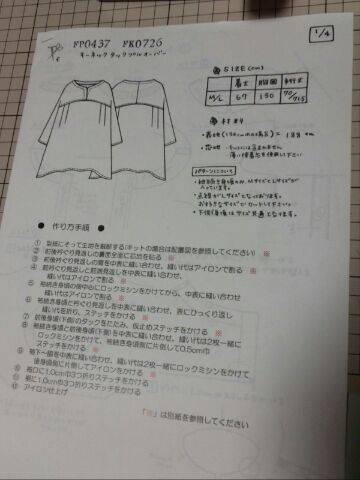 1/4
FP0437 FK0726
キーネックタックプルオーバー
SIZE(cm)
着丈 胸囲 裄丈
M/L 67 130 70/71.5
材料
・表地(150cm巾の場合)= 188 cm
・芯地
薄い接着芯を使用して下さい
パターンについて
・点線がLサイズとなっております。
● 作り方手順 ●
① 型紙にそって生地を裁断する(キットの場合は配置図を参照してください) ※
② 前後衿ぐり見返しの裏面全面に芯地を貼る ※
③ 前後衿ぐり見返しの肩を中表に縫い合わせ、縫い代はアイロンで割る ※
④ 前衿ぐり見返しと前後見返しを中表に縫い合わせ、
縫い代はアイロンで割る ※
⑤ 裕続き身頃の後中心にロックミシンをかけてから、中表に縫い合わせ
縫い代はアイロンで割る ※
⑥ 裕続き身頃と衿ぐり見返しを中表に縫い合わせ、表にひっくり返し
縫い代を折り、ステッチをかける ※
⑦ 前後身頃(下側)のタックをたたみ、仮止めステッチをかける ※
⑧ 裕続き身頃と前後身頃(下側)を中表に縫い合わせ、縫い代は2枚一緒に
ロックミシンをかけて、裕続き身頃側に片倒して0.5cm巾
ステッチをかける ※
⑨ 袖下〜脇を中表に縫い合わせ、縫い代は2枚一緒にロックミシンをかけて
後身頃側に片倒してアイロンをかける ※
⑩ 袖口に1.0cm巾3つ折りステッチをかける
⑪ 裾に1.0cm巾3つ折りステッチをかける
⑫ アイロン仕上げ
「※」は別紙を参照してください